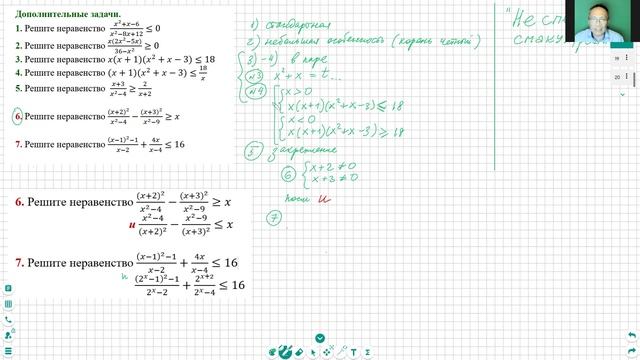 Дополнительные задачи.
1. Решите неравенство (x²+x−6)/(x²−8x+12) ≤ 0
2. Решите неравенство x(2x²−5x)/(36−x²) ≥ 0
3. Решите неравенство x(x + 1)(x² + x − 3) ≤ 18
4. Решите неравенство (x + 1)(x² + x − 3) ≤ 18/x
5. Решите неравенство (x+3)/(x²−4) ≥ 2/(x+2)
6. Решите неравенство (x+2)²/(x²−4) − (x+3)²/(x²−9) ≥ x
7. Решите неравенство ((x−1)²−1)/(x−2) + 4x/(x−4) ≤ 16
6. Решите неравенство (x+2)²/(x²−4) − (x+3)²/(x²−9) ≥ x
и (x²−4)/(x+2)² − (x²−9)/(x+3)² ≤ x
7. Решите неравенство ((x−1)²−1)/(x−2) + 4x/(x−4) ≤ 16
и ((2ˣ−1)²−1)/(2ˣ−2) + 2ˣ⁺²/(2ˣ−4) ≤ 16
1) стандартная
2) небольшая особенность (корень четный)
3)-4) в паре
№3 x² + x = t ...
№4 x > 0
x(x+1)(x²+x−3) ≤ 18
x < 0
x(x+1)(x²+x−3) ≥ 18
5 закрепление
6 x+2 ≠ 0
x+3 ≠ 0
и
7
"Не
19
20